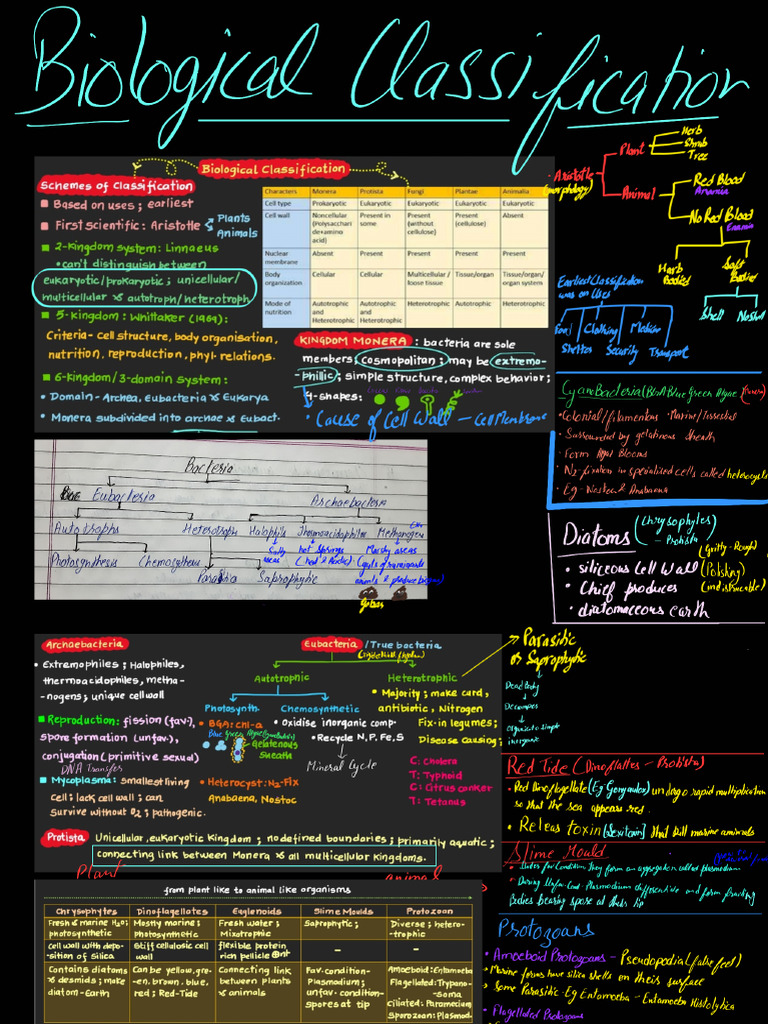 Biological Classification
Biological Classification
Schemes of Classification
Based on uses; earliest
First scientific: Aristotle
Plants
Animals
2-Kingdom system: Linnaeus
can't distinguish between
eukaryotic/prokaryotic; unicellular/
multicellular & autotroph/heterotroph
5-Kingdom: Whittaker (1969):
Criteria- cell structure, body organisation,
nutrition, reproduction, phyl. relations.
6-Kingdom/3-domain system:
Domain-Archea, Eubacteria & Eukarya
Monera subdivided into archae & Eubact.
Characters Monera Protista Fungi Plantae Animalia
Cell type Prokaryotic Eukaryotic Eukaryotic Eukaryotic Eukaryotic
Cell wall Noncellular (Polysaccharide+amino acid) Present in some Present (without cellulose) Present (cellulose) Absent
Nuclear membrane Absent Present Present Present Present
Body organization Cellular Cellular Multicellular / loose tissue Tissue/organ Tissue/organ/organ system
Mode of nutrition Autotrophic and Heterotrophic Autotrophic and Heterotrophic Heterotrophic Autotrophic Heterotrophic
KINGDOM MONERA : bacteria are sole
members, cosmopolitan; may be extremo-
-philic; simple structure, complex behavior;
4-shapes:
Cause of Cell Wall - Cell Membrane
Aristotle
(morphology)
Plant
Herb
Shrub
Tree
Animal
Red Blood
Anamia
No Red Blood
Enamia
Herb
Bodied
Soft
Bodied
Shell
No shell
Earliest Classification
was on Uses
Food Clothing Medicine
Shelter Security Transport
CyanoBacteria (BGA Blue Green Algae
Colonial/filamentous Marine/Terrestrial
Surrounded by gelatinous sheath
Form Algal Blooms
N2-fixation in specialised cells called heterocysts
Eg-Nostoc & Anabaena
Bacteria
Eubacteria Archaebacteria
Autotrophs Heterotroph Halophils Thermoacidophiles Methanogen
Photosynthesis Chemosynthesis
Parasitia Saprophytic
Salty
areas
hot springs
(hot & Acidic)
Marshy areas
(guts of ruminants
animals & produce biogas)
Diatoms (Chrysophytes)
- Protista
siliceous Cell Wall
(Gritty-Rough)
(Polishing)
(indistrucable)
Chief produces
diatomaceous earth
Archaebacteria
Extremophiles; Halophiles,
thermoacidophiles, metha-
-nogens; unique cell wall
Reproduction: fission (fav.),
spore formation (unfav.),
conjugation (primitive sexual)
DNA Transfer
Mycoplasma: smallest living
cell; lack cell wall; can
survive without O2; pathogenic.
Eubacteria /True bacteria
Autotrophic Heterotrophic
Photosynth. Chemosynthetic
BGA: chl-a
Blue Green Algae
Gelatenous
Sheath
Heterocyst: N2-Fix
Anabaena, Nostoc
Oxidise inorganic comp-
Recycle N,P,Fe,S
Mineral Cycle
Majority; make curd,
antibiotic, Nitrogen
Fix-in legumes;
Disease causing;
C: Cholera
T: Typhoid
C: Citrus canker
T: Tetanus
Parasitic
or Saprophytic
Dead body
Decomposes
Organic to Simple
inorganic
Protista
Unicellular, euKaryotic Kingdom; no defined boundaries; primarily aquatic;
connecting link between Monera & all multicellular Kingdoms.
Plant animal
Red Tide (Dinoflattes - Protista)
Red Dinoflagellate (Eg Gonyaulax) undergo rapid multiplication
so that the sea appears red.
Releas toxin (Sexitoxin) that kill marine animals
Slime Mould
Bodies bearing spore at their tip
from plant like to animal like organisms
Chrysophytes Dinoflagellates Euglenoids Slime Moulds Protozoan
Fresh & marine H2O; photosynthetic Mostly marine; photosynthetic Fresh water; Mixotrophic Saprophytic; Diverse; hetero--trophic
Cell wall with depo-sition of Silica Stiff cellulosic cell wall flexible protein rich pellicle - -
Contains diatoms & desmids; make diatom-Earth Can be yellow, gre-en, brown, blue, red; Red-Tide Connecting link between plants & animals Fav. condition-Plasmodium; unfav. condition-spores at tip Amoeboid: Entamoeba
Flagellated: Trypano--soma
Ciliated: Paramecium
Sporozoan: Plasmod.
Protozoans
Amoeboid Protozoans - Pseudopodia (false feet)
Marine forms have silica shells on their surface
Some Parasitic Eg Entamoeba - Entamoeba Histolytica
Flagellated Protozoans